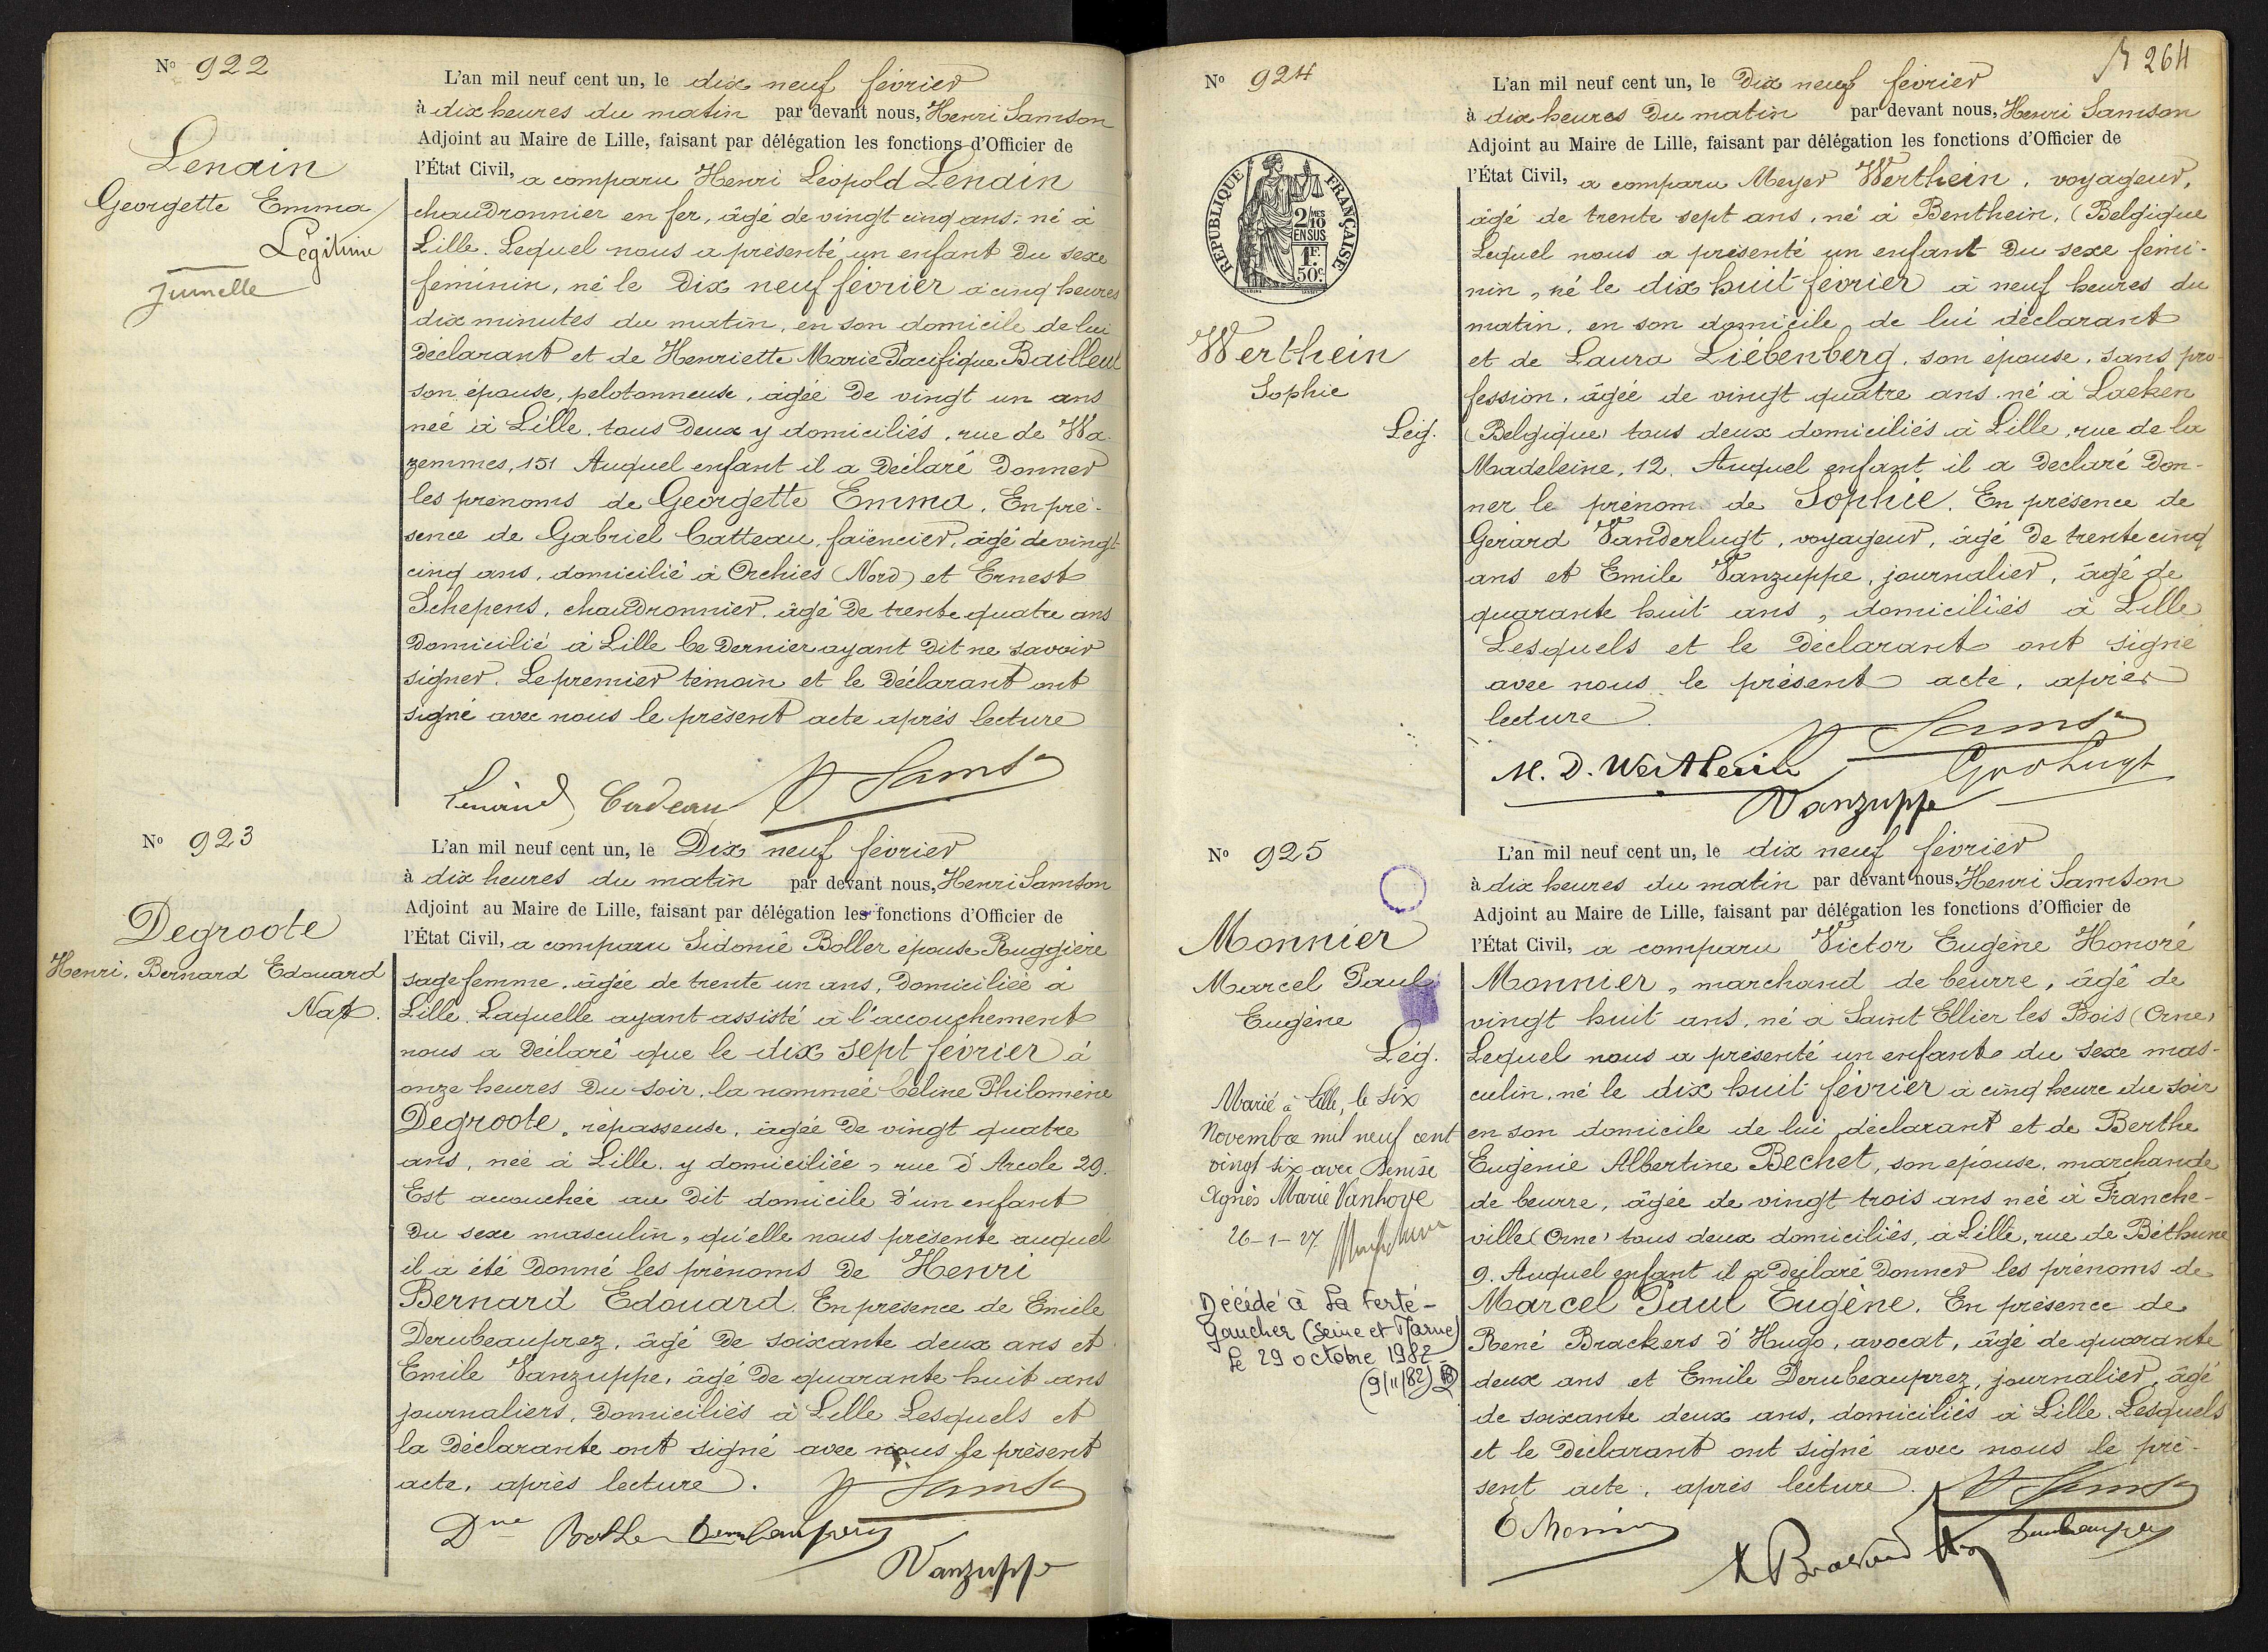 Nº 922
Lenain
Georgette Emma
Légitime
Jumelle
L'an mil neuf cent un, le dix neuf février
à dix heures du matin par devant nous, Henri Samson
Adjoint au Maire de Lille, faisant par délégation les fonctions d'Officier de
l'État Civil, a comparu Henri Léopold Lenain
chaudronnier en fer, âgé de vingt cinq ans, né à
Lille. Lequel nous a présenté un enfant du sexe
féminin, né le dix neuf février à cinq heures
dix minutes du matin, en son domicile de lui
déclarant et de Henriette Marie Pacifique Bailleul
son épouse, pelotonneuse, âgée de vingt un ans
née à Lille, tous deux y domiciliés, rue de Wa-
zemmes, 151 Auquel enfant il a déclaré donner
les prénoms de Georgette Emma. En pré-
sence de Gabriel Catteau, faïencier, âgé de vingt
cinq ans, domicilié à Orchies (Nord) et Ernest
Schepens, chaudronnier, âgé de trente quatre ans
domicilié à Lille ce dernier ayant dit ne savoir
signer. Le premier témoin et le déclarant ont
signé avec nous le présent acte après lecture
Nº 923
Degroote
Henri, Bernard Edouard
Nat.
L'an mil neuf cent un, le Dix neuf février
à dix heures du matin par devant nous, Henri Samson
Adjoint au Maire de Lille, faisant par délégation les fonctions d'Officier de
l'État Civil, a comparu Sidonie Boller épouse Ruggiere
sage femme, âgée de trente un ans, domiciliée à
Lille. Laquelle ayant assisté à l'accouchement
nous a déclaré que le dix sept février à
onze heures du soir, la nommée Céline Philomène
Degroote, repasseuse, âgée de vingt quatre
ans, née à Lille, y domiciliée, rue d'Arcole 29.
Est accouchée au dit domicile d'un enfant
du sexe masculin, qu'elle nous présente auquel
il a été donné les prénoms de Henri
Bernard Edouard. En présence de Emile
Derubeauprez, âgé de soixante deux ans et
Emile Vanzuppe, âgé de quarante huit ans
journaliers, domiciliés à Lille Lesquels et
la déclarante ont signé avec nous le présent
acte, après lecture.
Vanzuppe
264
Nº 924
RÉPUBLIQUE FRANÇAISE
2/10 MES
EN SUS
1F.
50c
Werthein
Sophie
Lég.
L'an mil neuf cent un, le Dix neuf février
à dix heures du matin par devant nous, Henri Samson
Adjoint au Maire de Lille, faisant par délégation les fonctions d'Officier de
l'État Civil, a comparu Meyer Werthein, voyageur,
âgé de trente sept ans, né à Benthein, (Belgique
Lequel nous a présenté un enfant du sexe fémi-
nin, né le dix huit février à neuf heures du
matin, en son domicile de lui déclarant
et de Laura Liébenberg, son épouse, sans pro-
fession, âgée de vingt quatre ans, né à Laeken
(Belgique) tous deux domiciliés à Lille, rue de la
Madeleine, 12. Auquel enfant il a déclaré don-
ner le prénom de Sophie. En présence de
Gérard Vanderlugt, voyageur, âgé de trente cinq
ans et Emile Vanzuppe, journalier, âgé de
quarante huit ans, domiciliés à Lille
Lesquels et le déclarant ont signé
avec nous le présent acte, après
lecture.
M. D. Werthein
Vanzuppe
Nº 925
Monnier
Marcel Paul
Eugène
Lég.
Marié à Lille, le six
Novembre mil neuf cent
vingt six avec Denise
Agnès Marie Vanhove
26-1-27
Décédé à La Ferté-
Gaucher (Seine et Marne)
le 29 octobre 1982
(9/11/82)
L'an mil neuf cent un, le dix neuf février
à dix heures du matin par devant nous, Henri Samson
Adjoint au Maire de Lille, faisant par délégation les fonctions d'Officier de
l'État Civil, a comparu Victor Eugène Honoré
Monnier, marchand de beurre, âgé de
vingt huit ans, né à Saint Ellier les Bois (Orne)
Lequel nous a présenté un enfant du sexe mas-
culin, né le dix huit février à cinq heure du soir
en son domicile de lui déclarant et de Berthe
Eugénie Albertine Bechet, son épouse, marchande
de beurre, âgée de vingt trois ans née à Franche-
ville (Orne) tous deux domiciliés, à Lille, rue de Béthune
9. Auquel enfant il a déclaré donner les prénoms de
Marcel Paul Eugène. En présence de
René Brackers d'Hugo, avocat, âgé de quarante
deux ans et Emile Derubeauprez, journalier, âgé
de soixante deux ans, domiciliés à Lille. Lesquels
et le déclarant ont signé avec nous le pré-
sent acte, après lecture.